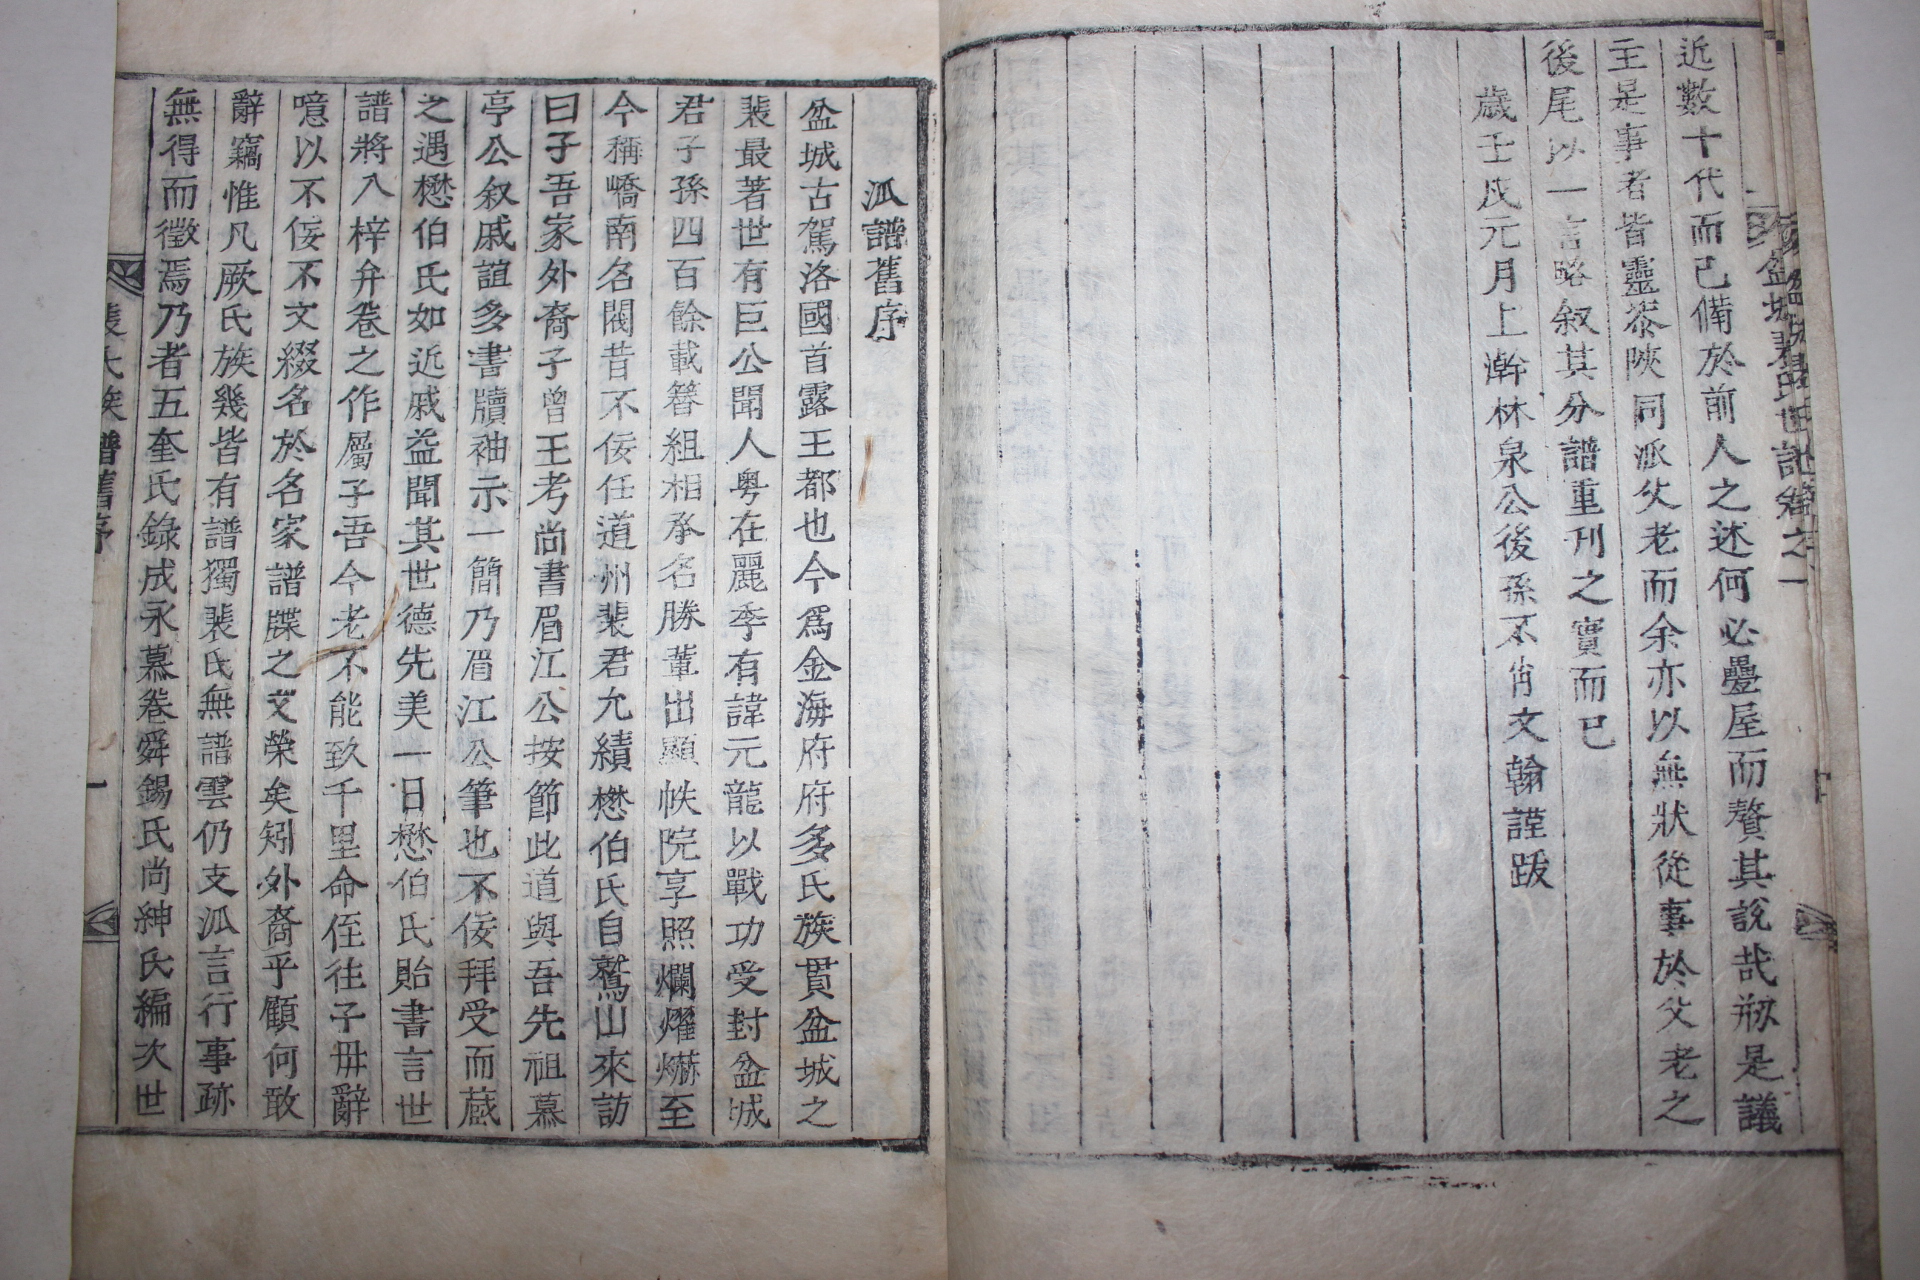 近數十代而已備於前人之述何必疊屋而贅其說哉刱是議
主是事者皆靈泰陜同派父老而余亦以無狀從事於父老之
後尾以一言略叙其分譜重刊之實而已
歲壬戌元月上澣林泉公後孫不肖文翰謹跋
盆城裴氏世譜卷之一
派譜舊序
盆城古駕洛國首露王都也今爲金海府府多氏族貫盆城之
裴最著世有巨公聞人粤在麗季有諱元龍以戰功受封盆城
君子孫四百餘載簪組相承名勝輩出顯帙院享照爛燿爀至
今稱嶠南名閥昔不佞任道州裴君允績懋伯氏自鷲山來訪
曰子吾家外裔子曾王考尚書眉江公按節此道與吾先祖慕
亭公叙戚誼多書牘袖示一簡乃眉江公筆也不佞拜受而蔵
之遇懋伯氏如近戚益聞其世德先美一日懋伯氏貽書言世
譜將入梓弁卷之作屬子吾今老不能致千里命侄往子毋辭
噫以不佞不文綴名於名家譜牒之文榮矣矧外裔乎顧何敢
辭竊惟凡厥氏族幾皆有譜獨裴氏無譜雲仍支派言行事跡
無得而徵焉乃者五奎氏錄成永慕卷舜錫氏尚紳氏編次世
裴氏族譜舊序
一